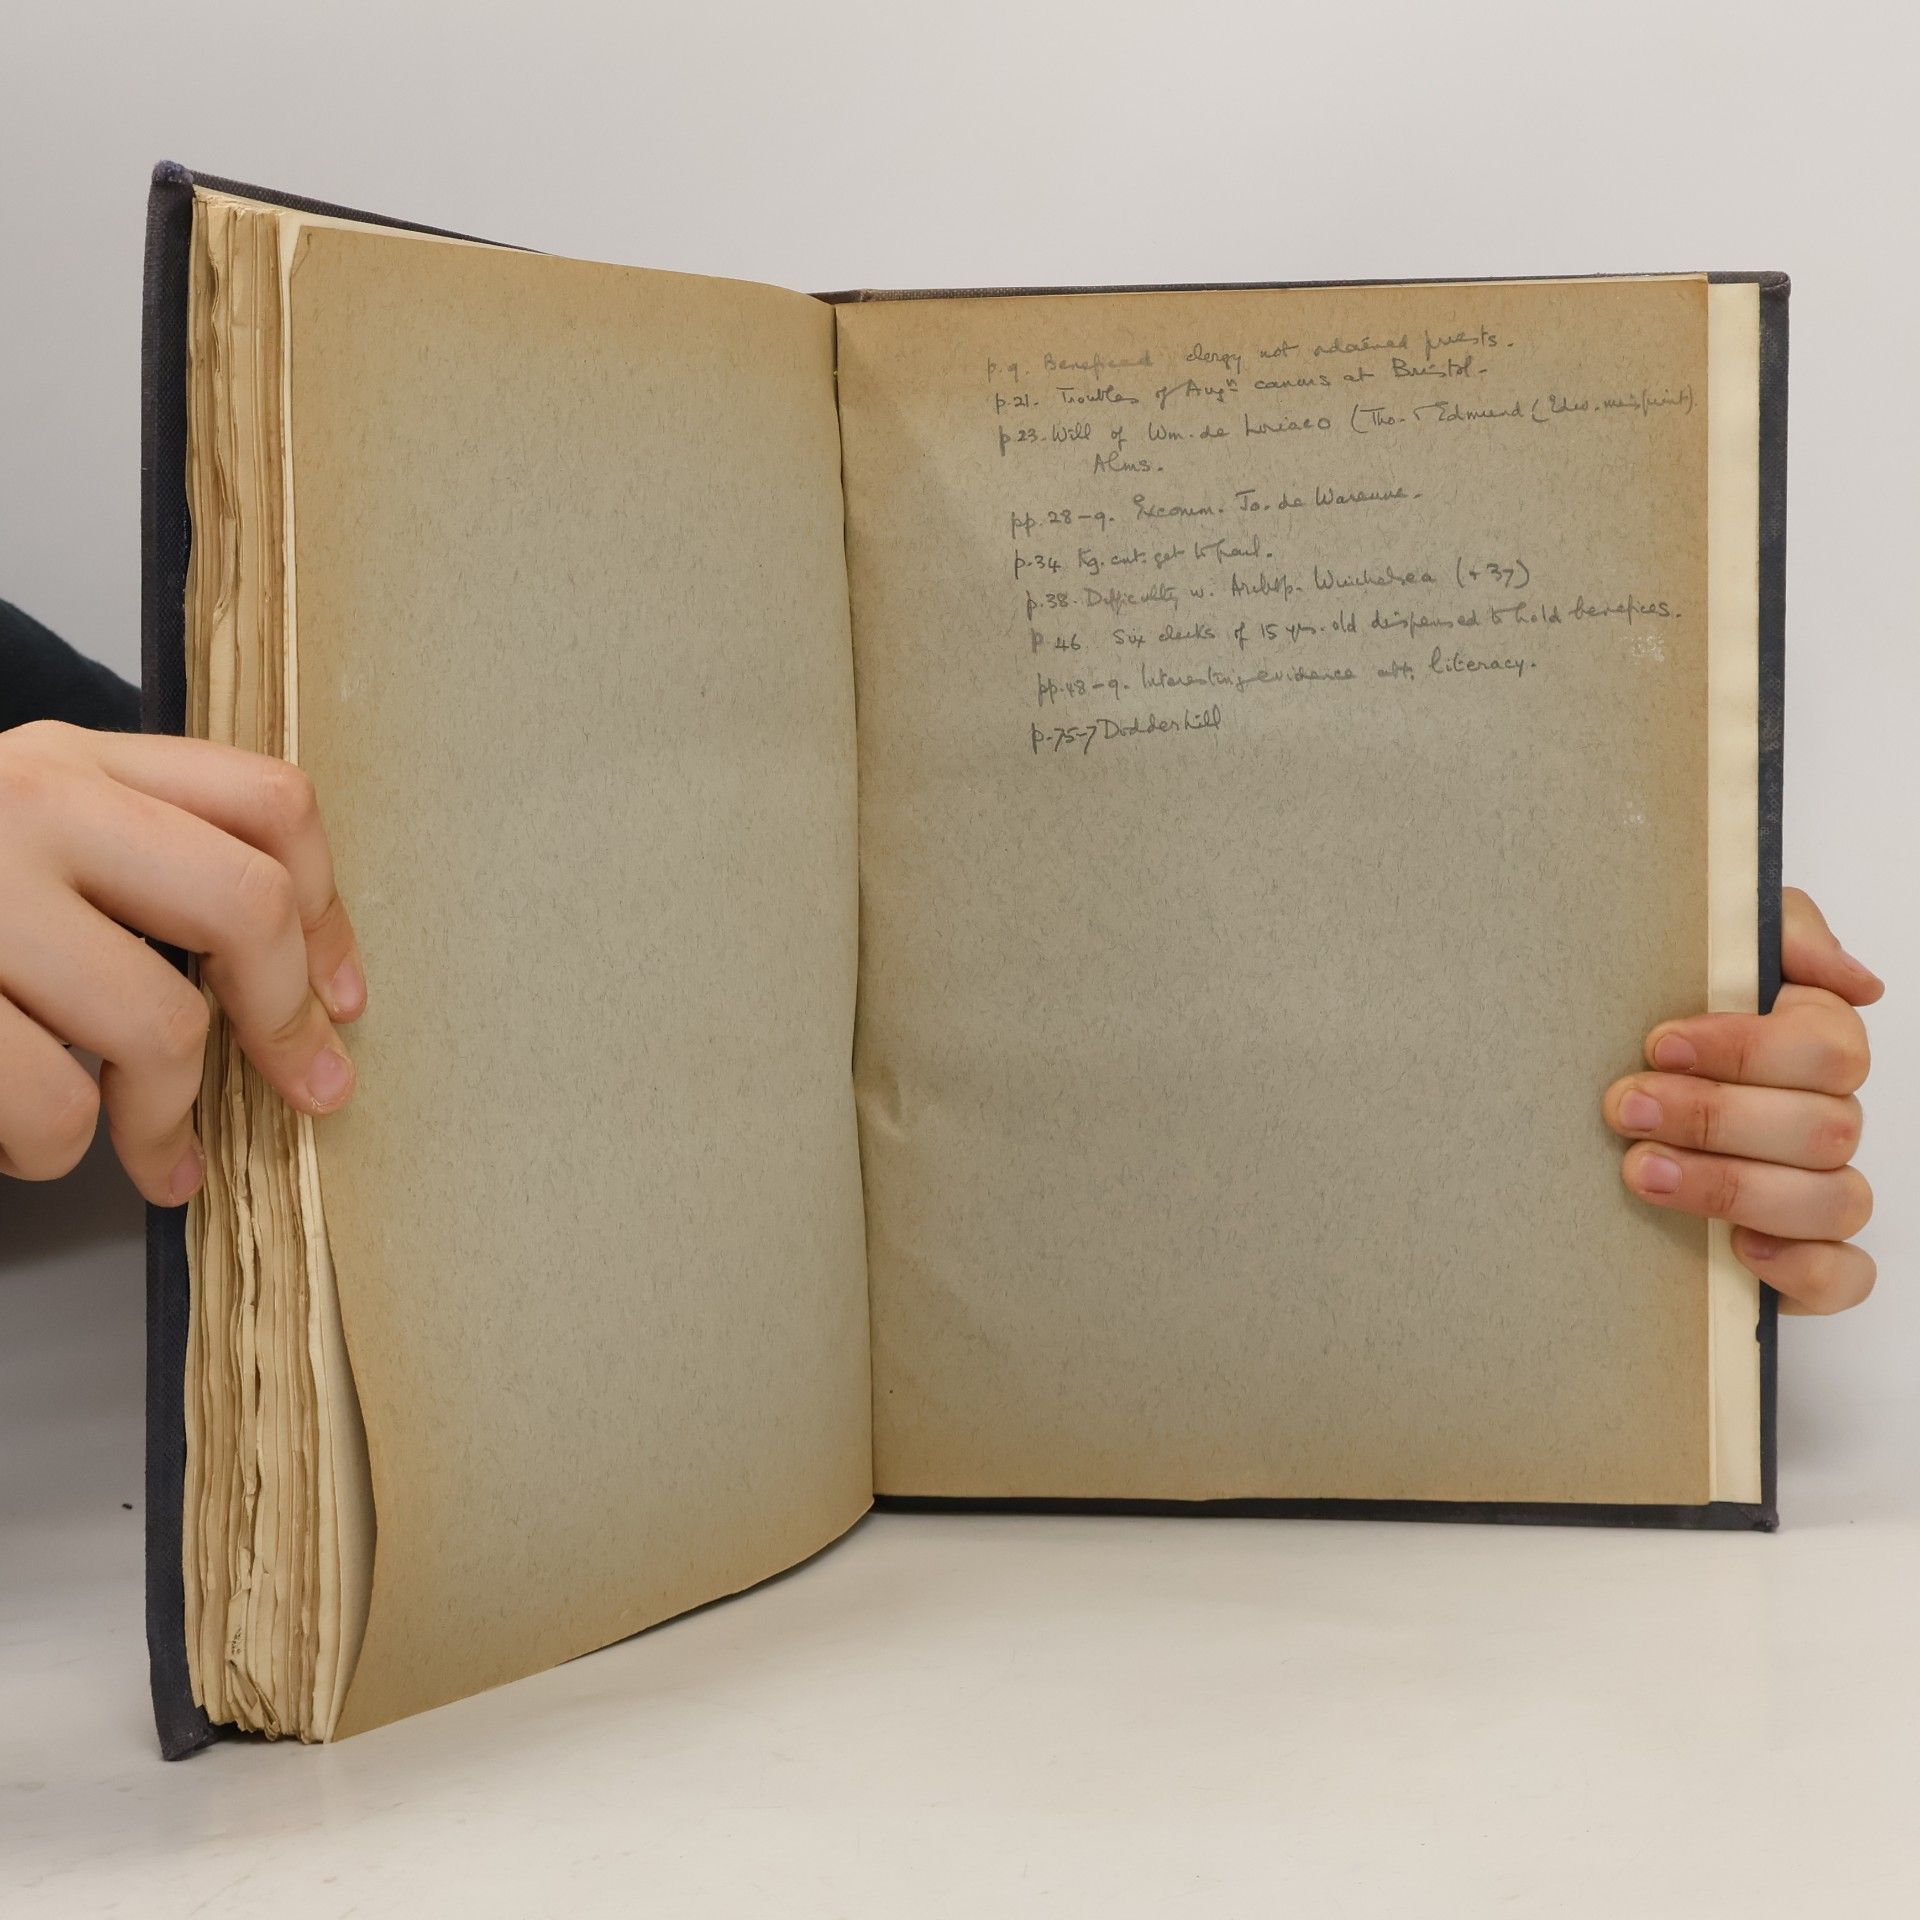 p.9. Beneficed clergy not ordained priests.
p.21. Troubles of Augn canons at Bristol.
p.23. Will of Wm. de (Tho. Edmund (Edw. misprint).
Alms.
pp.28-9. Excomm. Jo. de Warenne.
p.34 Kg. cnt. get to
p.38. Difficulty w. Archbp. Winchelsea (+ 37)
p.46 Six clerks of 15 yrs. old dispensed to hold benefices.
pp.48-9. Interesting evidence abt. literacy.
p.75-7 Dodderhill